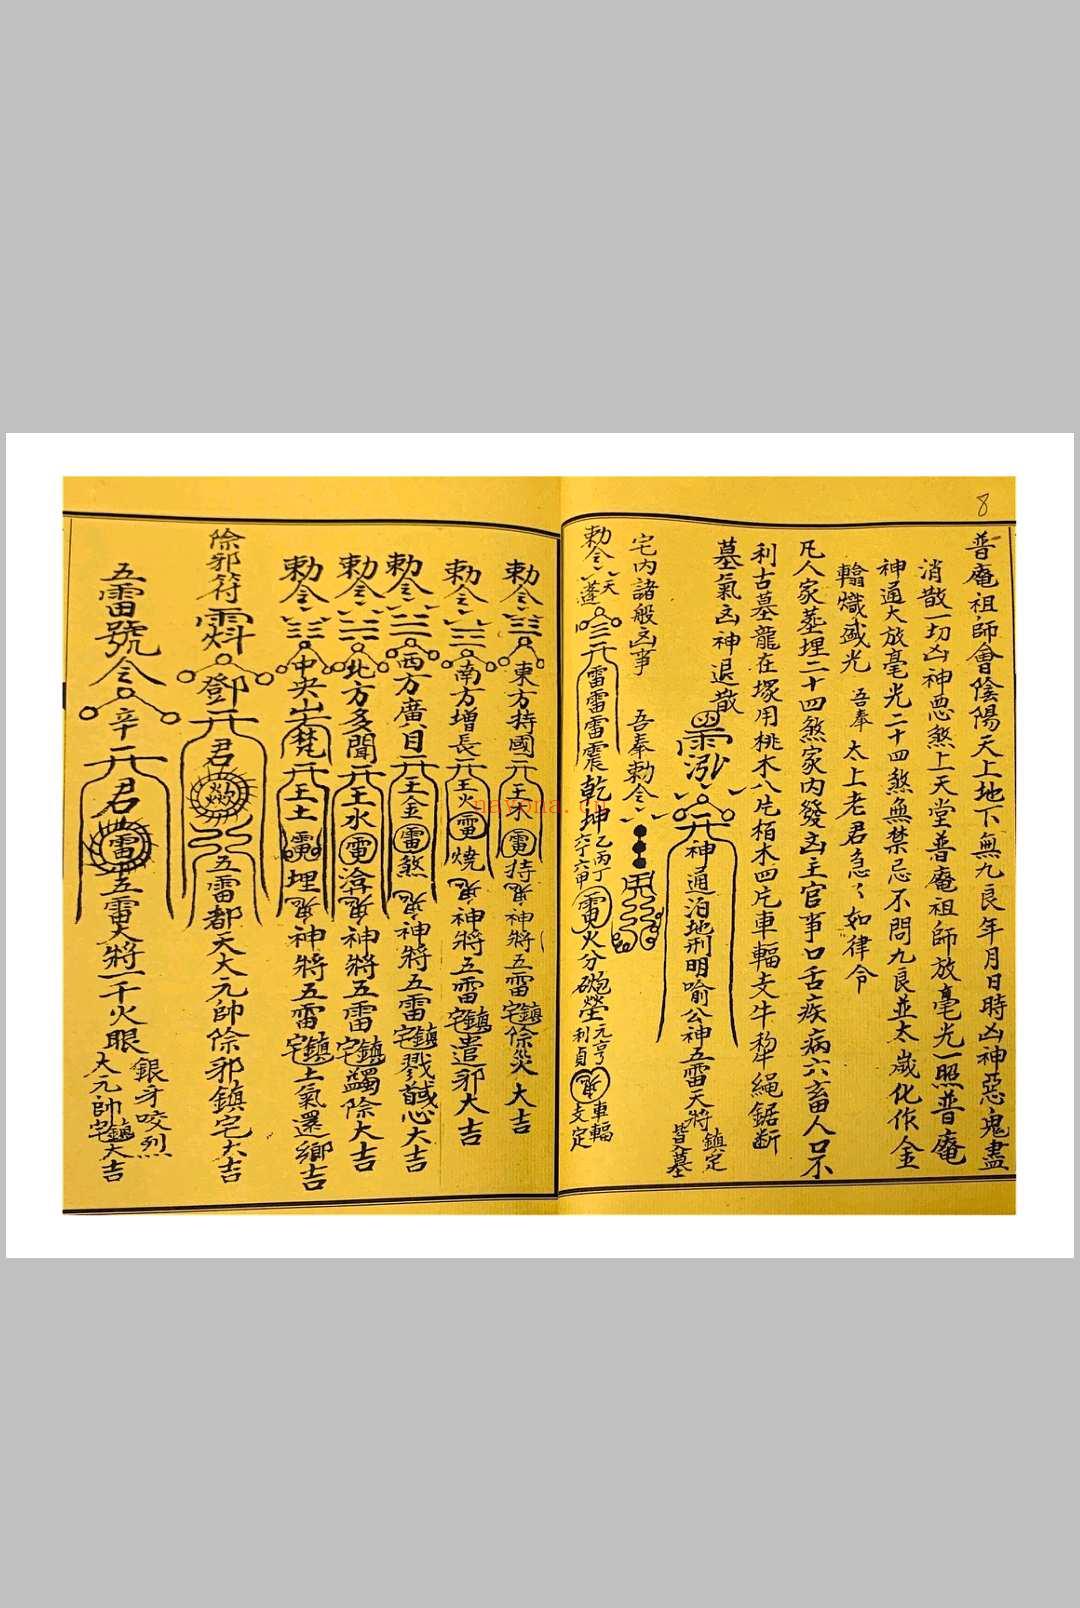 8
普庵祖師會陰陽天上地下無九良年月日時凶神惡鬼盡
消散一切凶神惡煞上天堂普庵祖師放毫光一照普庵
神通大放毫光二十四煞無禁忌不問九良並太歲化作金
輪熾盛光 吾奉 太上老君急々如律令
凡人家墓埋二十四煞家內發凶主官事口舌疾病六畜人口不
利古墓龍在塚用桃木八片栢木四片車輻支牛犂繩鋸断
墓氣凶神退散
神通泊地刑明喻公神五雷天將 鎮定 皆墓
宅內諸般凶事 吾奉勅令
勅令 天蓬 雷雷雷震 乾坤 乙丙丁 六丁六甲 電火分 元亨 利貞 車輻 支定
勅令 東方持國 王木 電 持 神將五雷 鎮宅 除災 大吉
勅令 南方增長 王火 電 燒 神將五雷 鎮宅 遣邪大吉
勅令 西方廣目 王金 雷 煞 神將五雷 鎮宅 大吉
勅令 北方多聞 王水 電 神將五雷 鎮宅 蠲除大吉
勅令 中央 梵 王土 埋 神將五雷 鎮宅 土氣還鄉吉
除邪符 鄧 君 五雷都天大元帥除邪鎮宅大吉
五雷號令 辛 君 雷 五雷大將 千火眼 銀牙咬烈 大元帥 鎮宅 大吉
nayona.cn